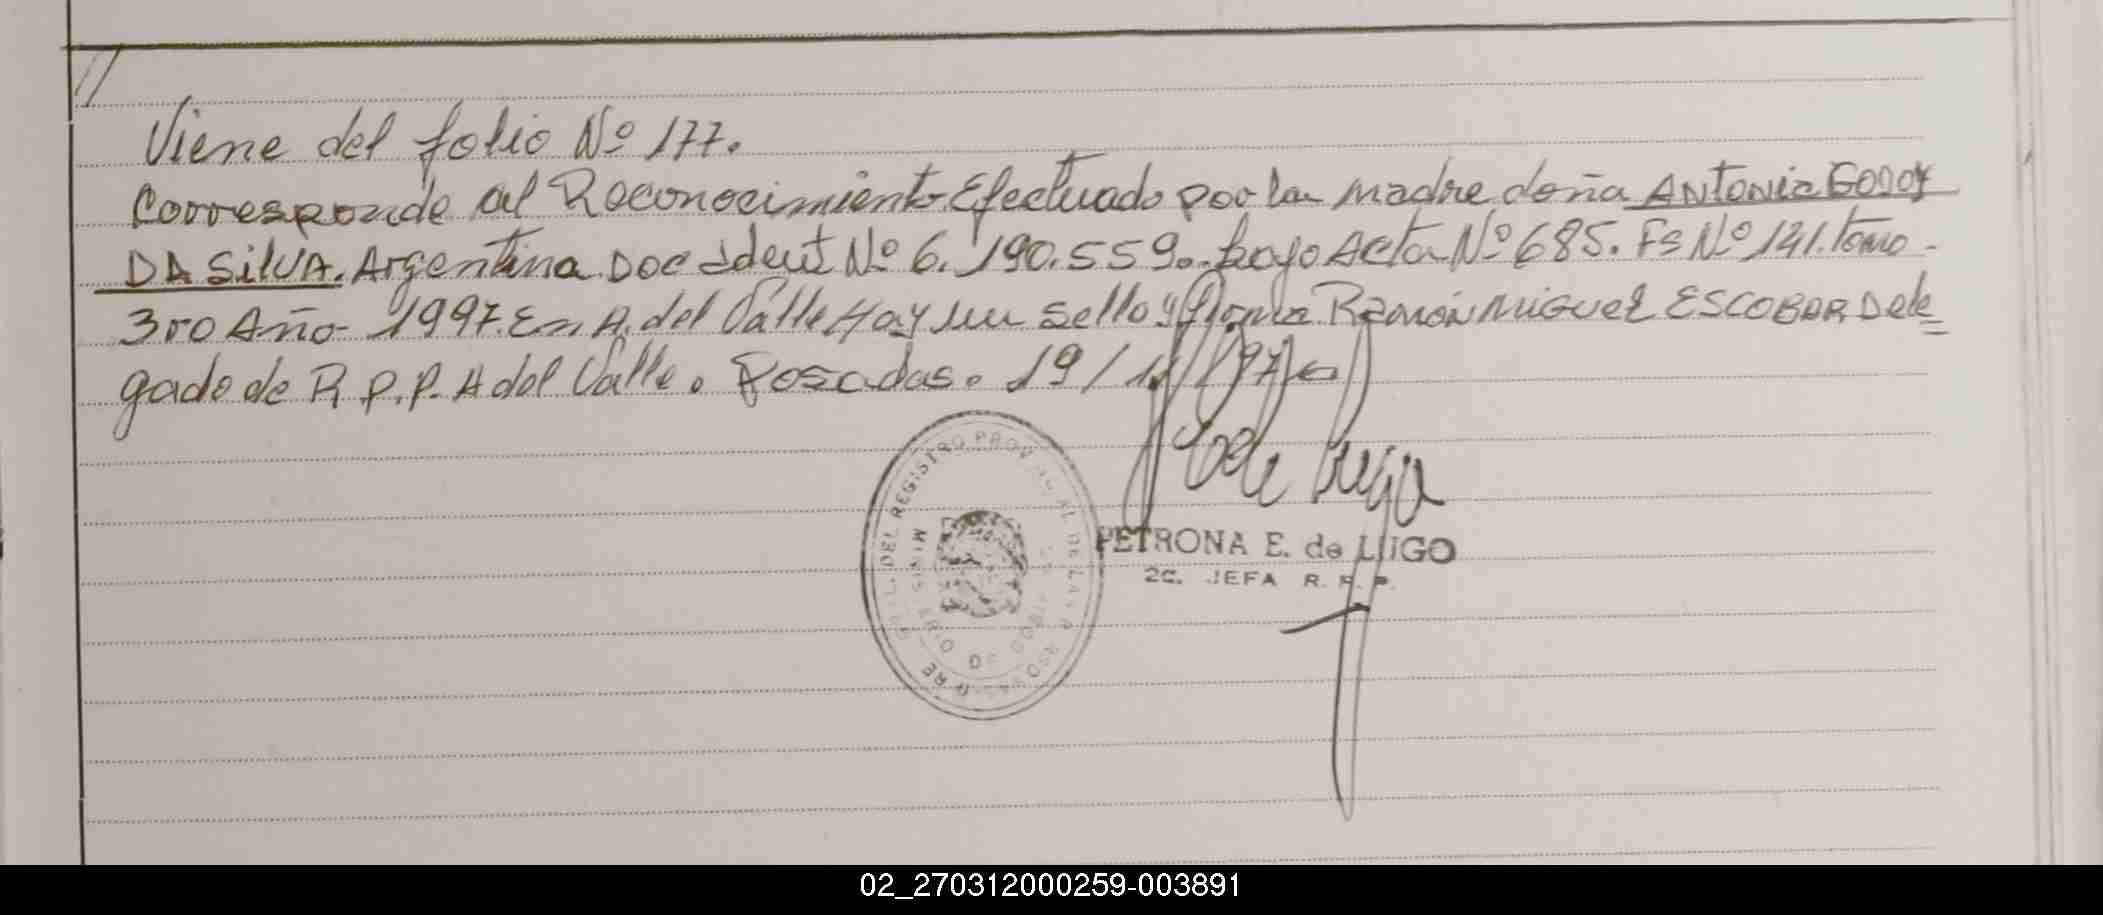 Viene del folio Nº 177.
Corresponde al Reconocimiento Efectuado por la madre doña ANTONIA GODOY
DA SILVA. Argentina Doc Ident Nº 6.190.559. bajo Acta Nº 685. Fs Nº 141. tomo
3ro Año 1997. En A. del Valle Hay un sello y firma Ramón Miguel ESCOBAR Dele
gado de R.P.P. A del Valle. Posadas. 19/11/97
PETRONA E. de LUGO
JEFA R.P.P.
DEL REGISTRO PROVINCIAL DE LAS PERSONAS
MINISTERIO DE GOBIERNO
02_270312000259-003891